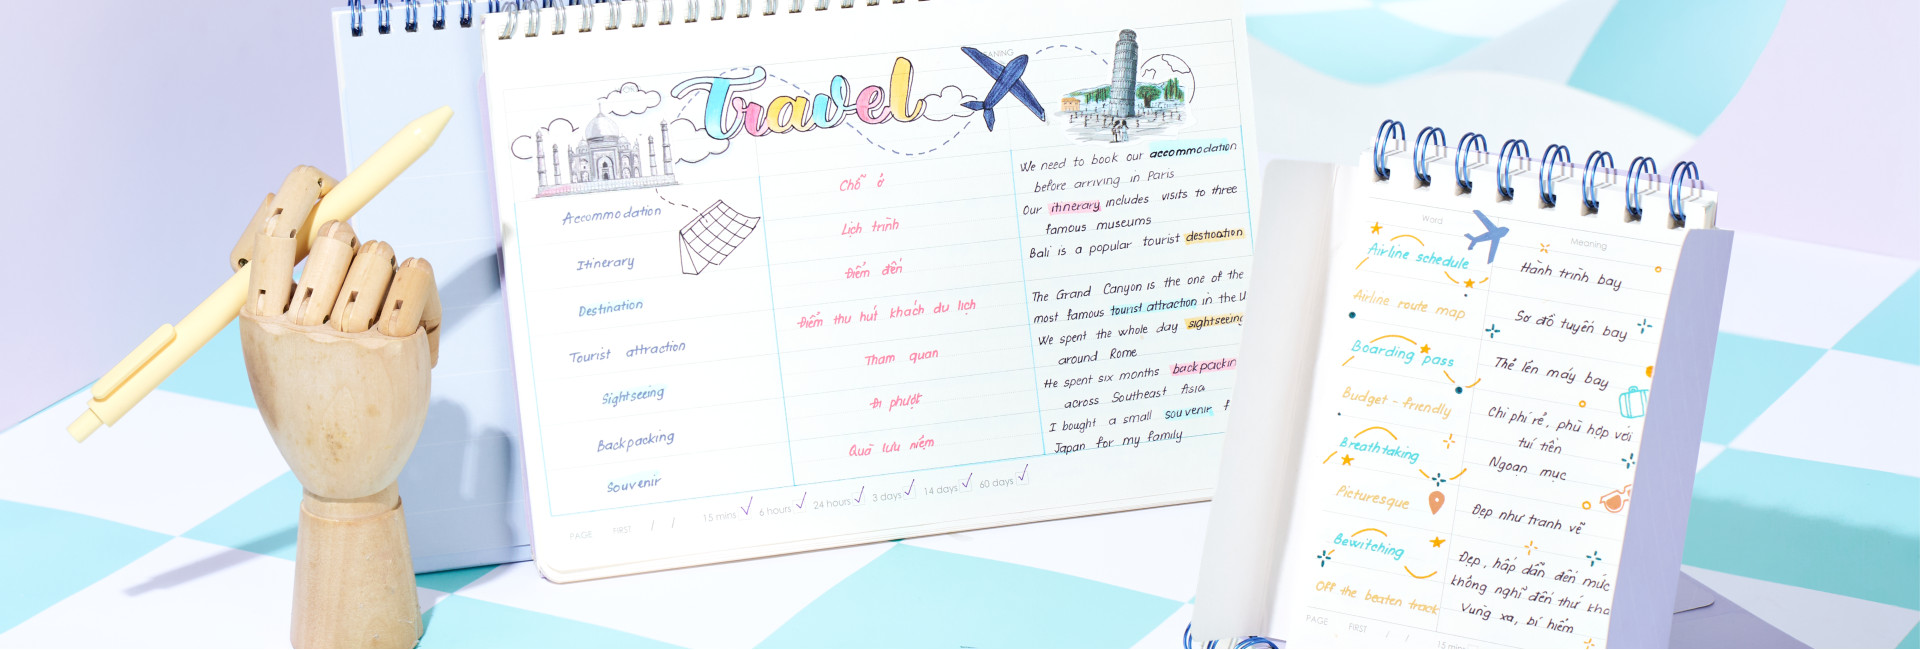 Travel
Accommodation
Itinerary
Destination
Tourist attraction
Sightseeing
Backpacking
Souvenir
Chỗ ở
Lịch trình
Điểm đến
Điểm thu hút khách du lịch
Tham quan
Đi phượt
Quà lưu niệm
We need to book our accommodation
before arriving in Paris
Our itinerary includes visits to three
famous museums
Bali is a popular tourist destination
The Grand Canyon is the one of the
most famous tourist attraction in the U
We spent the whole day sightseeing
around Rome
He spent six months backpackin
across Southeast Asia
I bought a small souvenir f
Japan for my family
PAGE FIRST / / 15 mins 6 hours 24 hours 3 days 14 days 60 days
Word Meaning
Airline schedule
Hành trình bay
Airline route map
Sơ đồ tuyến bay
Boarding pass
Thẻ lên máy bay
Budget - friendly
Chi phí rẻ, phù hợp với
túi tiền
Breathtaking
Ngoạn mục
Picturesque
Đẹp như tranh vẽ
Bewitching
Đẹp, hấp dẫn đến mức
không nghĩ đến thứ khá
Off the beaten track
Vùng xa, bí hiểm
PAGE FIRST / / 15 mins